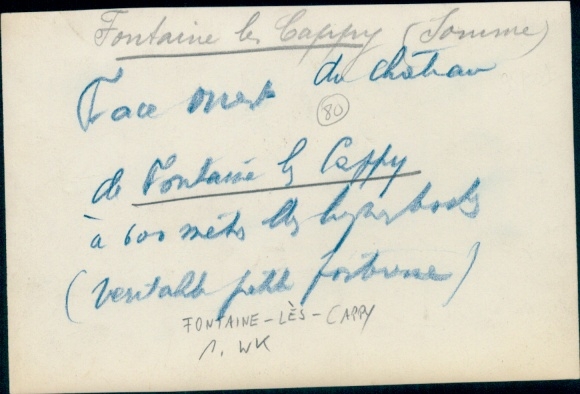 Fontaine les Cappy (Somme)
Face ouest du château
80
de Fontaine les Cappy
à 600 mètres des lignes boches
(veritable petite forteresse)
FONTAINE-LÈS-CAPPY
1. WK